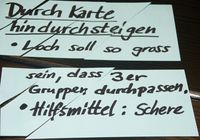 Durch Karte
hindurchsteigen
• Loch soll so gross
sein, dass 3er
Gruppen durchpassen.
• Hilfsmittel: Schere